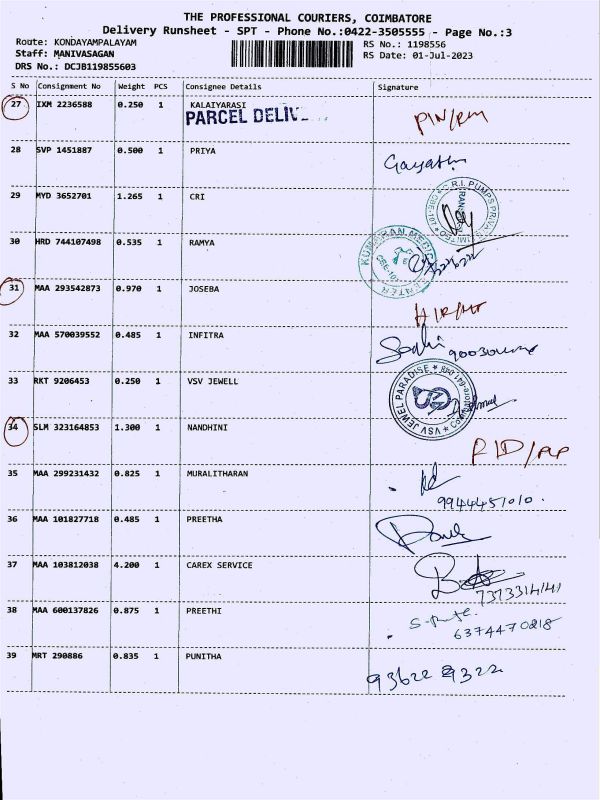 THE PROFESSIONAL COURIERS, COIMBATORE
Delivery Runsheet - SPT - Phone No.:0422-3505555 - Page No.:3
Route: KONDAYAMPALAYAM
RS No.: 1198556
Staff: MANIVASAGAN
RS Date: 01-Jul-2023
DRS No.: DCJB119855603
S No Consignment No Weight PCS Consignee Details Signature
27 IXM 2236588 0.250 1 KALAIYARASI
PARCEL
28 SVP 1451887 0.500 1 PRIYA
29 MYD 3652701 1.265 1 CRI
30 HRD 744107498 0.535 1 RAMYA
31 MAA 293542873 0.970 1 JOSEBA
32 MAA 570039552 0.485 1 INFITRA
33 RKT 9206453 0.250 1 VSV JEWELL
VSV JEWEL PARADISE
34 SLM 323164853 1.300 1 NANDHINI
35 MAA 299231432 0.825 1 MURALITHARAN
9944451010.
36 MAA 101827718 0.485 1 PREETHA
37 MAA 103812038 4.200 1 CAREX SERVICE
38 MAA 600137826 0.875 1 PREETHI
6374470218
39 MRT 290886 0.835 1 PUNITHA
93622 29322